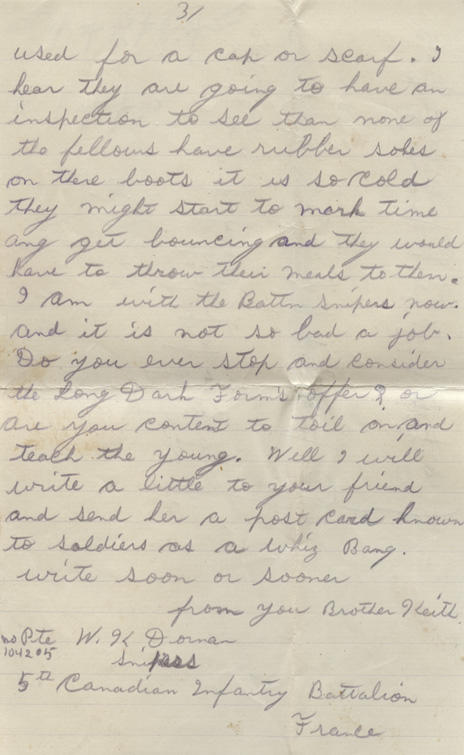 3/
used for a cap or scarf. I
hear they are going to have an
inspection to see than none of
the fellows have rubber soles
on there boots it is so cold
they might start to mark time
ang get bouncing and they would
have to throw their meals to them.
I am with the Battn snipers now.
and it is not so bad a job.
Do you ever stop and consider
the Long Dark Form's offer? or
are you content to toil on and
teach the young. Well I will
write a little to your friend
and send her a post card known
to soldiers as a Whiz Bang.
write soon or sooner
from you Brother Keith.
no Pte W. K Dornan
104205
Snipers
5th Canadian Infantry Battalion
France